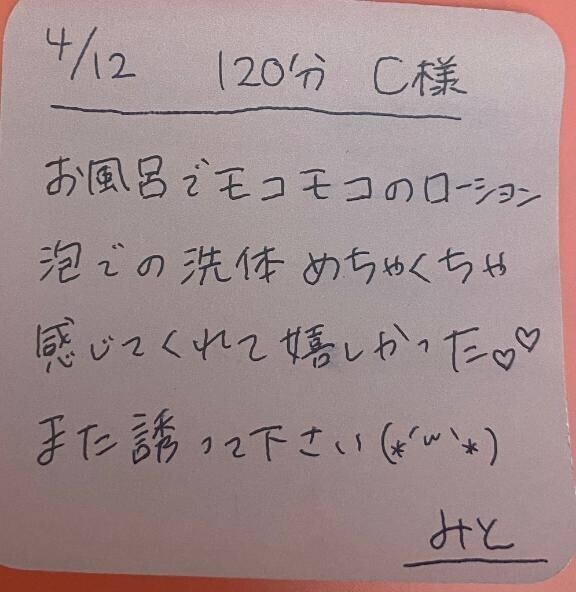 4/12 120分 C様
お風呂でモコモコのローション
泡での洗体 めちゃくちゃ
感じてくれて嬉しかった♡♡
また誘って下さい(*´ω`*)
みと